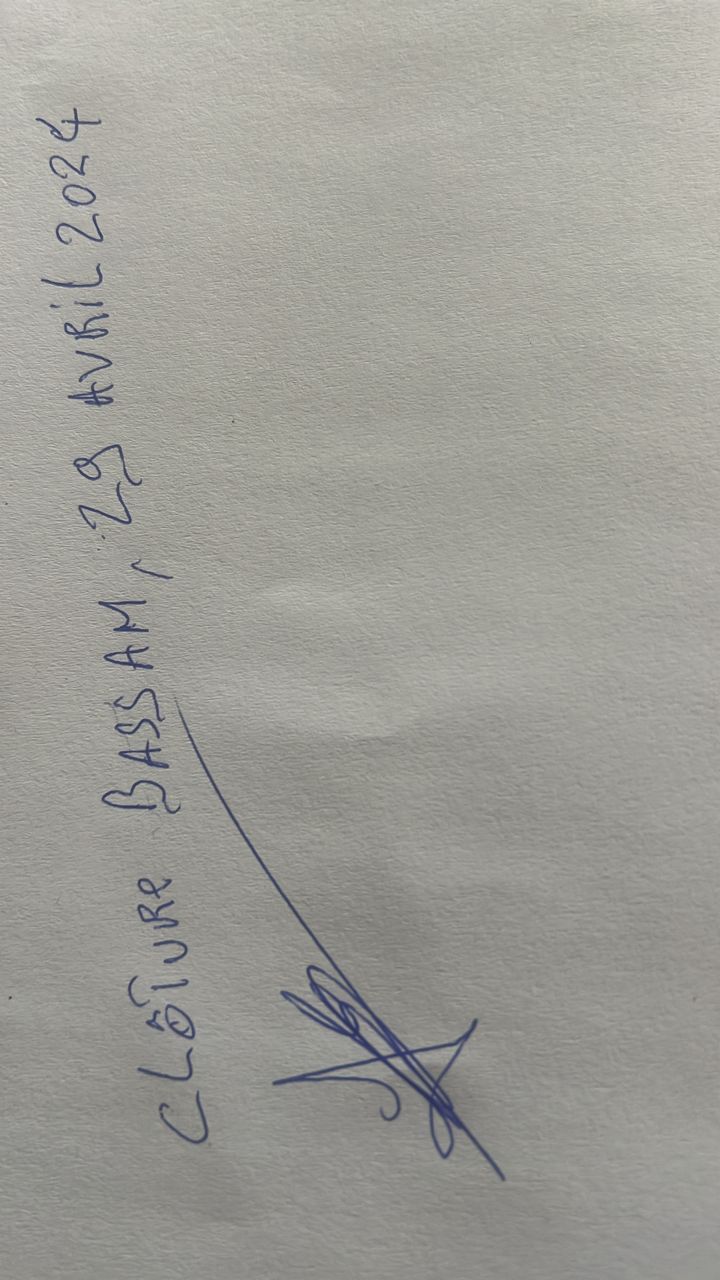 CLÔTURE BASSAM, 29 AVRIL 2024